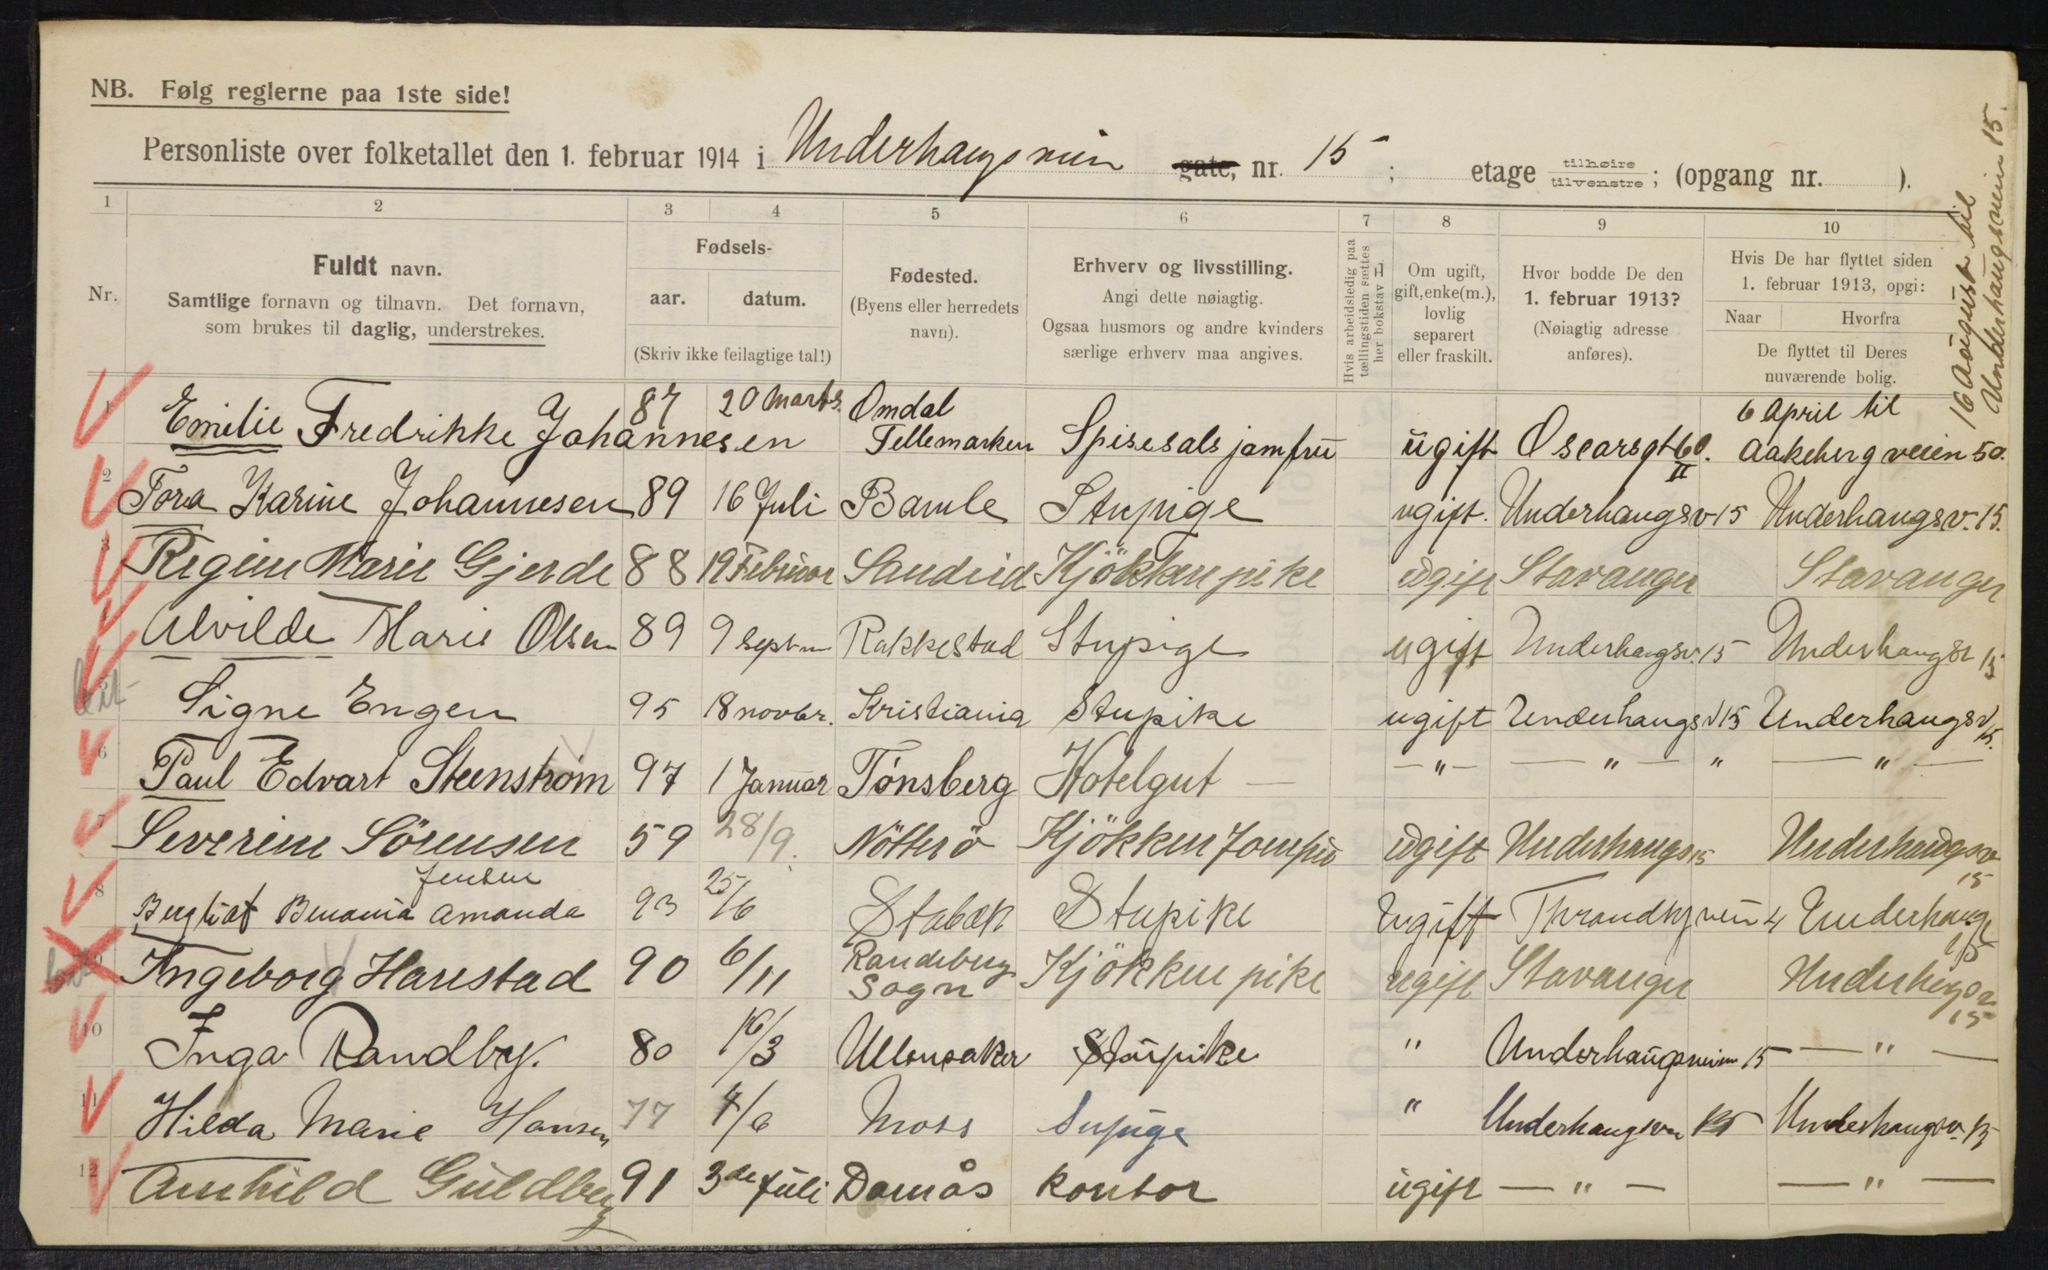 NB. Følg reglerne paa 1ste side!
Personliste over folketallet den 1. februar 1914 i Underhaugsveien gate, nr. 15 ; etage tilhøire tilvenstre ; (opgang nr. ).
16 August til
Underhaugsveien 15.
1 2 3 4 5 6 7 8 9 10
Nr.
Fuldt navn.
Samtlige fornavn og tilnavn. Det fornavn,
som brukes til daglig, understrekes.
Fødsels-
aar. datum.
(Skriv ikke feilagtige tal!)
Fødested.
(Byens eller herredets
navn).
Erhverv og livsstilling.
Angi dette nøiagtig.
Ogsaa husmors og andre kvinders
særlige erhverv maa angives.
Hvis arbeidsledig paa
tællingstiden sættes
her bokstav L
Om ugift,
gift, enke(m.),
lovlig
separert
eller fraskilt.
Hvor bodde De den
1. februar 1913?
(Nøiagtig adresse
anføres).
Hvis De har flyttet siden
1. februar 1913, opgi:
Naar Hvorfra
De flyttet til Deres
nuværende bolig.
1 Emilie Fredrikke Johannesen 87 20 Marts. Omdal Tellemarken Spisesalsjomfru ugift Oscarsgt 60. II 6 April til Aakebergveien 50.
2 Tora Karine Johannesen 89 16 Juli Bamle Stupige ugift. Underhaugsv 15 Underhaugsv. 15.
3 Regine Marie Gjerde 88 19 Februar Sandeid Kjökkenpike ugift Stavanger Stavanger
4 Alvilde Marie Olsen 89 9 Septm Rakkestad Stupige ugift Underhaugsv. 15 Underhaugsv 15
5 Signe Engen 95 18 novbr. Kristiania Stupike ugift Underhaugsv 15 Underhaugsv 15.
6 Paul Edvart Steenstrøm 97 1 Januar Tønsberg Hotelgut — — " — — " — " — " —
7 Severine Sörensen 59 28/9. Nötterö Kjökkenjomfru ugift Underhaugs 15 Underhaugsv 15
8 Bergliot Benania Amanda Jensen 93 25/6 Stabæk Stupike Ugift Throndhjveien 4 Underhaugs 15
9 Ingeborg Harestad 90 6/11 Randeberg Sogn Kjökkenpike ugift Stavanger Underhaugsv 15
10 Inga Randby. 80 16/3 Ullensaker Stupike " Underhaugsveien 15 — " —
11 Hilda Marie Hansen 77 4/6 Moss Stupige " Underhaugsvn 15 Underhaugsv. 15
12 Arnhild Guldberg 91 3de juli Domås kontor ugift — " — — " —